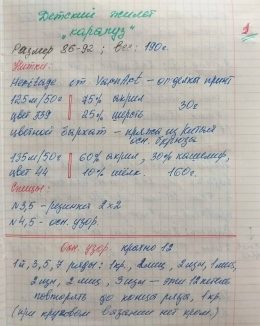 Детский жилет
"карапуз"
1
Размер 86-92 ; Вес: 190г.
Нитки:
Heritage от YarnArt - отделка принт
125м/50г | 75% акрил 30г
цвет 339 | 25% шерсть
цветной бархат - пряжа из Китая
осн. бирюза
135м/50г | 60% акрил, 30% кашемир,
цвет 44 | 10% шёлк. 160г.
Спицы:
N3,5 - резинка 2х2
N4,5 - осн. узор.
Осн. узор. кратно 12
1й, 3, 5, 7 ряды: 1кр., 2лиц, 2изн, 1лиц,
2изн, 2лиц, 3изн - эти 12 петель
повторять до конца ряда, 1кр.
(при круговом вязании нет кром.)